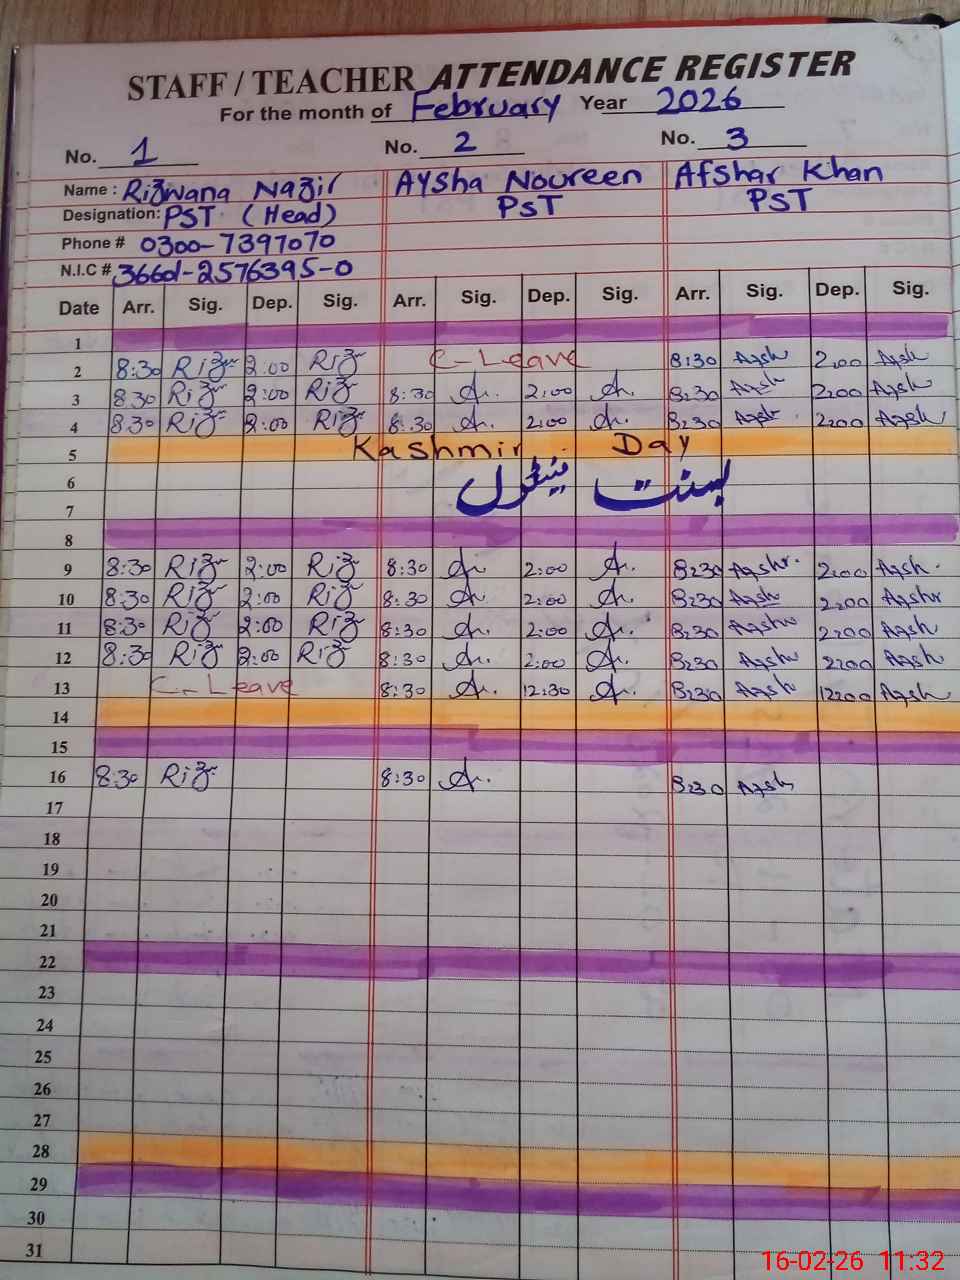 STAFF / TEACHER ATTENDANCE REGISTER
For the month of February Year 2026
No. 1 No. 2 No. 3
Name : Rizwana Nazir Aysha Noureen Afshar Khan
Designation: PST (Head) PST PST
Phone # 0300-7397070
N.I.C # 36601-2576395-0
Date Arr. Sig. Dep. Sig. Arr. Sig. Dep. Sig. Arr. Sig. Dep. Sig.
1
2 8:30 Riz 2:00 Riz C-Leave 8:30 Afsh 2:00 Afsh
3 8:30 Riz 2:00 Riz 8:30 2:00 8:30 Afsh 2:00 Afsh
4 8:30 Riz 2:00 Riz 8:30 2:00 8:30 Afsh 2:00 Afsh
5 Kashmir Day
6 بسنت
7
8
9 8:30 Riz 2:00 Riz 8:30 2:00 8:30 Afsh 2:00 Afsh
10 8:30 Riz 2:00 Riz 8:30 2:00 8:30 Afsh 2:00 Afsh
11 8:30 Riz 2:00 Riz 8:30 2:00 8:30 Afsh 2:00 Afsh
12 8:30 Riz 2:00 Riz 8:30 2:00 8:30 Afsh 2:00 Afsh
13 C-Leave 8:30 12:30 8:30 Afsh 12:00 Afsh
14
15
16 8:30 Riz 8:30 8:30 Afsh
17
18
19
20
21
22
23
24
25
26
27
28
29
30
31
16-02-26 11:32